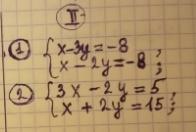 II
① { x-3y=-8 ,
x - 2y=-8 ;
② { 3x -2y = 5 ,
x + 2y = 15 ;